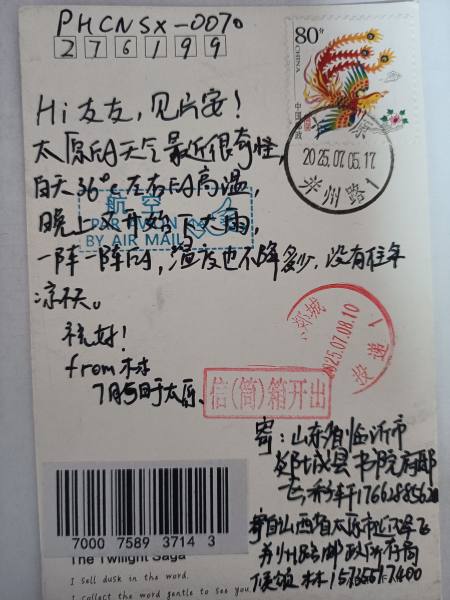 PHCNSX-0070
276199
80分
CHINA
中国邮政
太原
2025.07.05.17
并州路1
Hi友友，见片安！
太原的天气最近很奇怪，
白天36℃左右的高温，
晚上又开始下大雨，
一阵一阵的，温度也不降多少，没有往年
凉爽。
航空
PAR AVION
BY AIR MAIL
祝好！
from 林
7月5日于太原、
郯城
2025.07.08.10
投递
信(筒)箱开出
寄：山东省临沂市
郯城县书院府邸
寄自山西省太原市
7000 7589 3714 3
The Twilight Saga
I sell dusk in the word.
I collect the word gentle to see you